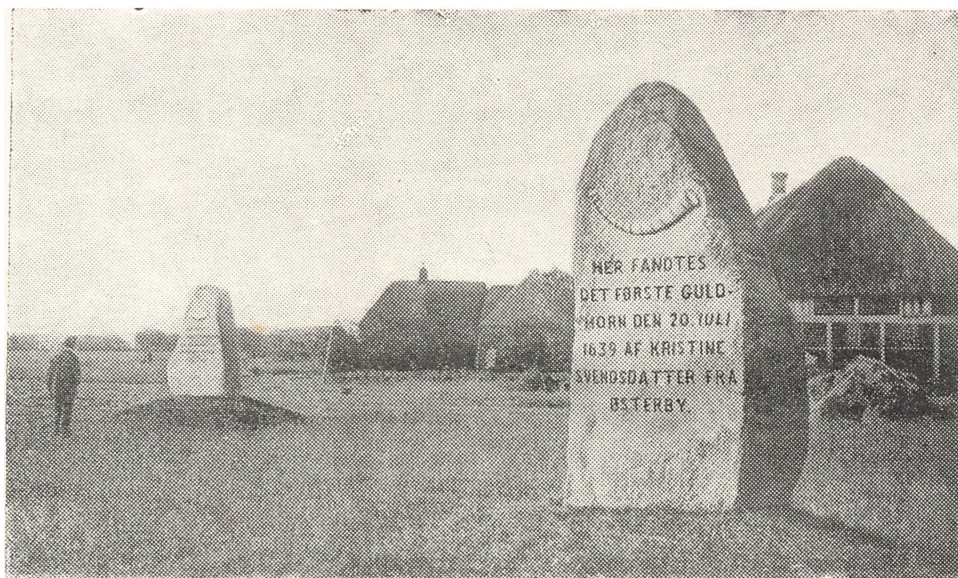 HER FANDTES
DET FØRSTE GULD-
HORN DEN 20. JULI
1639 AF KRISTINE
SVENDSDATTER FRA
ØSTERBY.